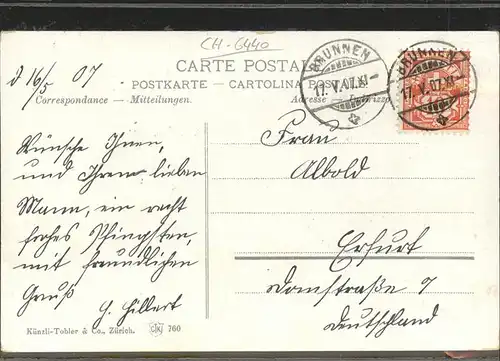 CH-6440
CARTE POSTALE
POSTKARTE — CARTOLINA POSTALE
Correspondance — Mitteilungen.
Adresse — Indirizzo
BRUNNEN
17. V. 07. XI
BRUNNEN
17. V. 07. XI
d 16/5 07
Wünsche Ihnen,
und Ihrem lieben
Mann, ein recht
frohes Pfingsten,
mit freundlichen
Gruß
G. Hillert
Frau
Albold
Erfurt
Domstraße 7
Deutschland
Künzli-Tobler & Co., Zürich.
760